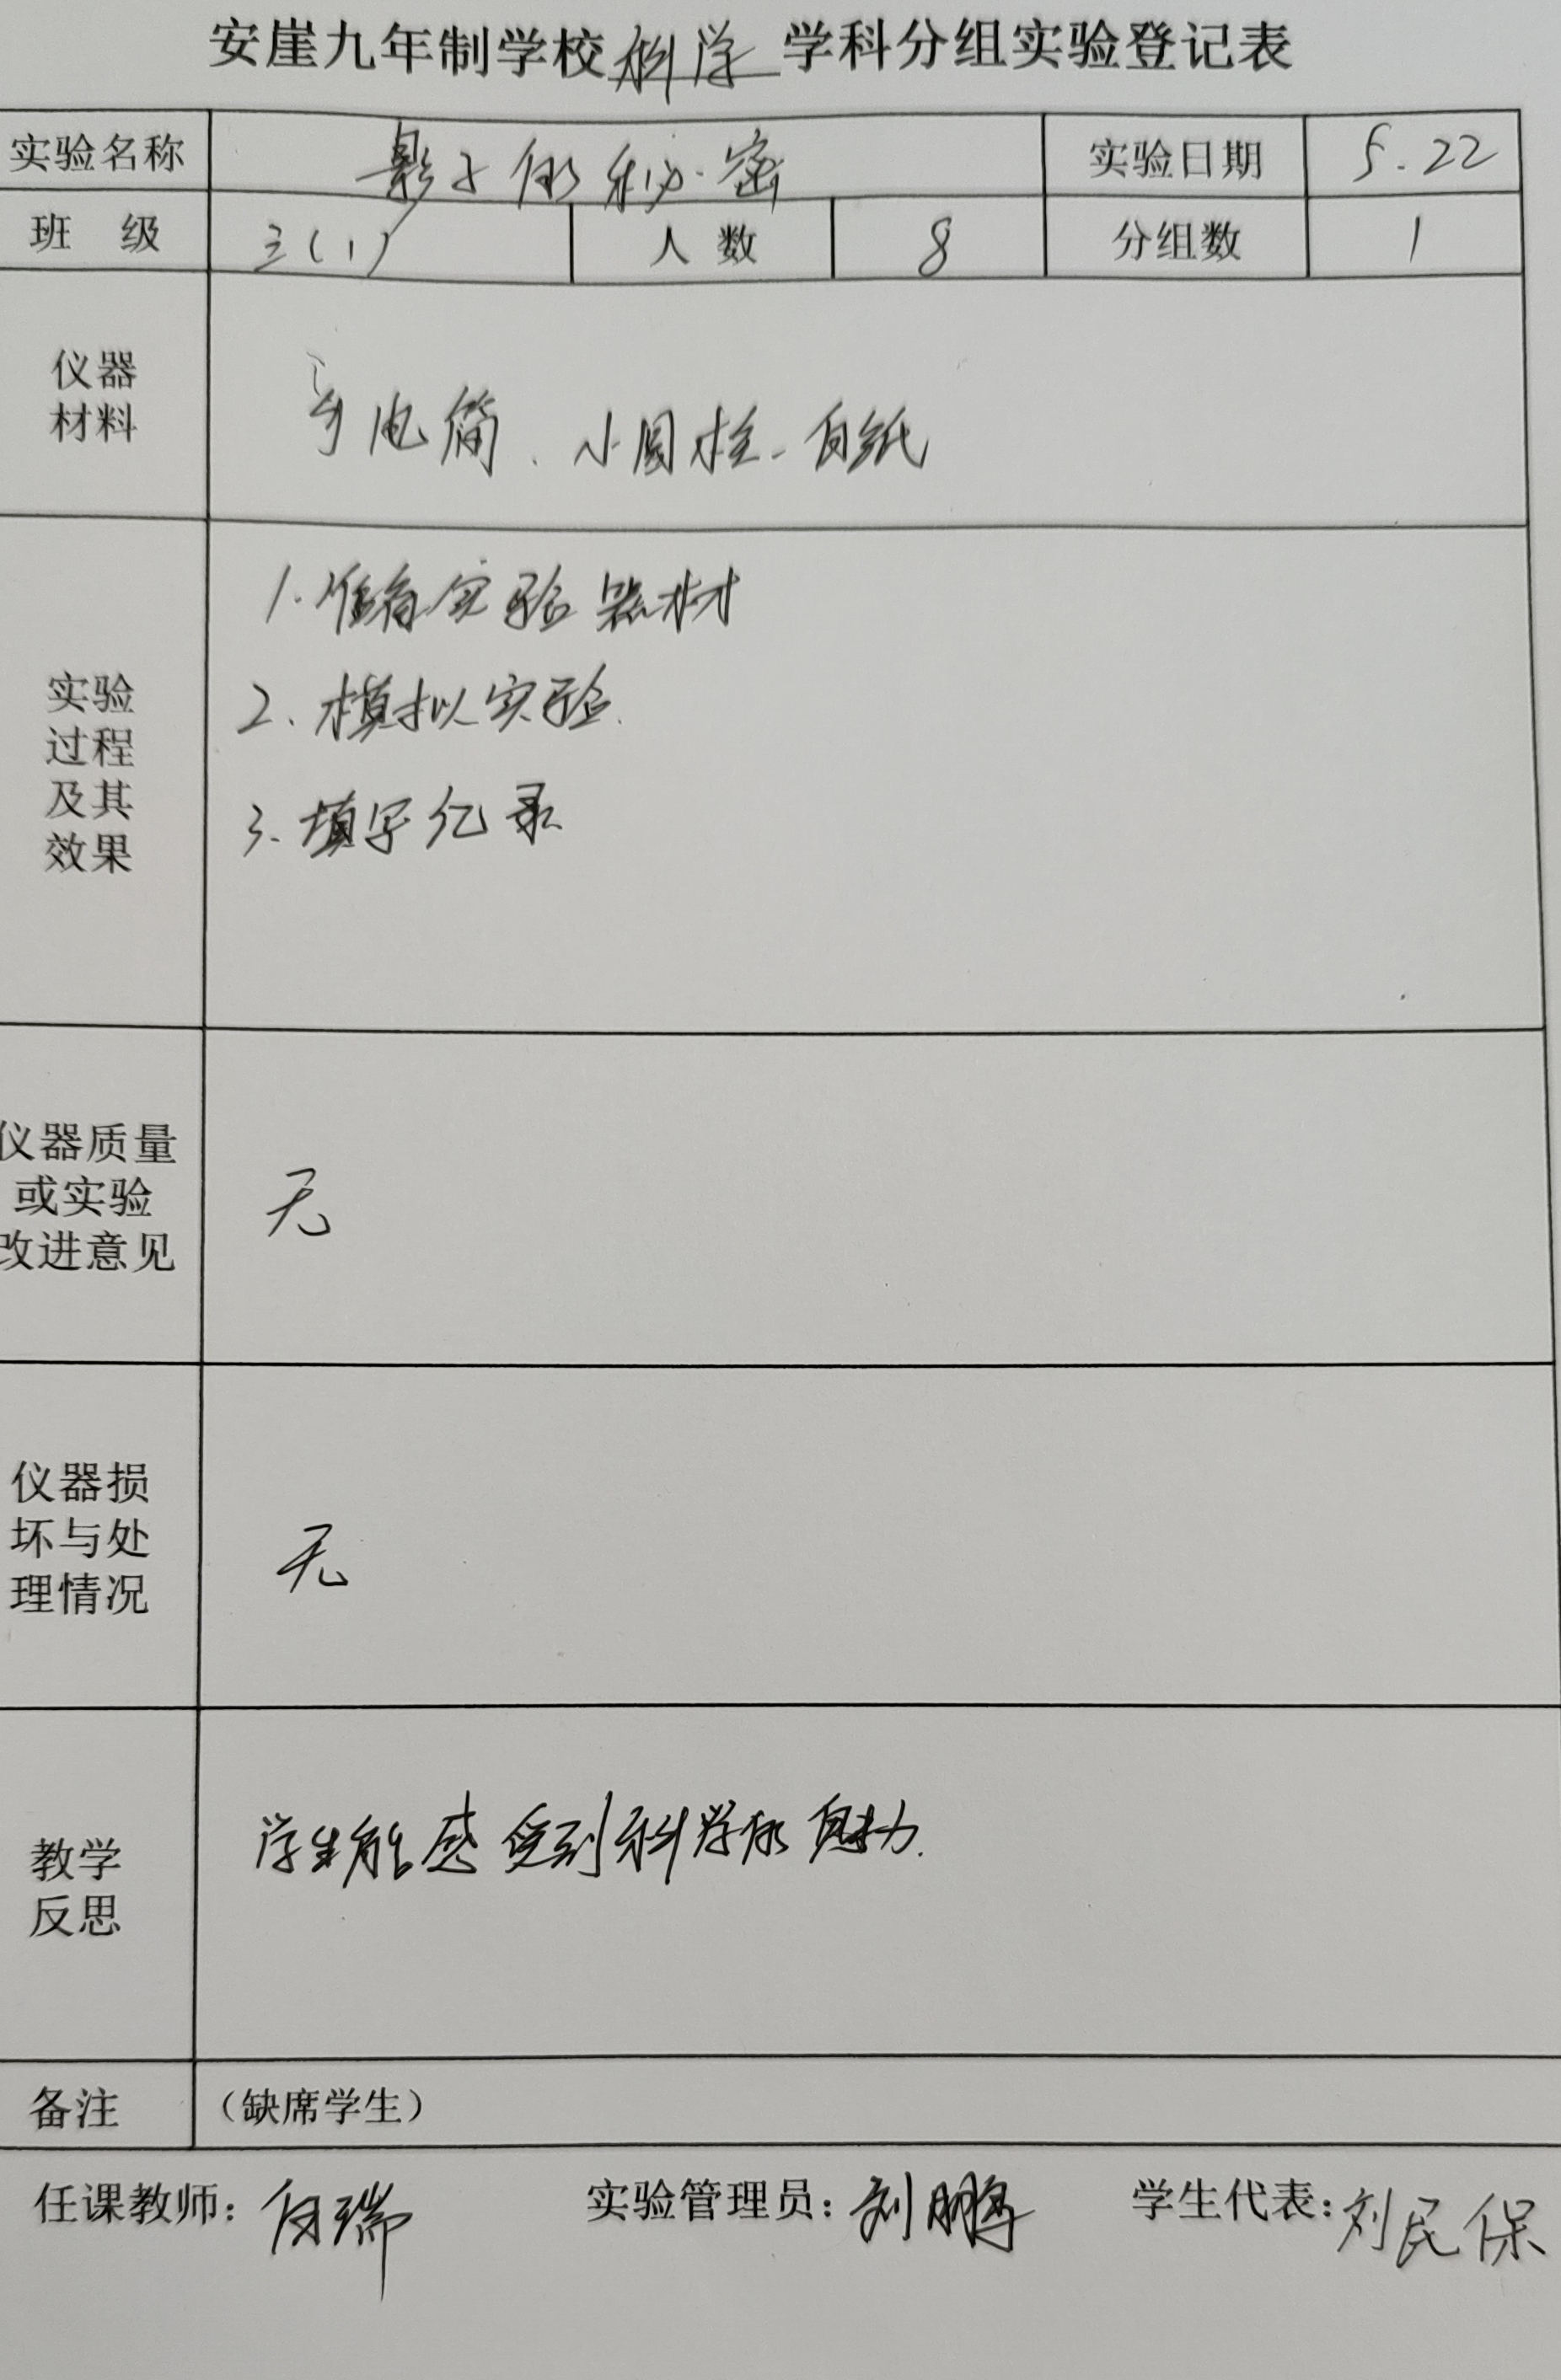 安崖九年制学校科学学科分组实验登记表
实验名称 影子的秘密 实验日期 5.22
班 级 三(1) 人 数 8 分组数 1
仪器
材料
手电筒、小圆柱、白纸
实验
过程
及其
效果
1.准备实验器材
2.模拟实验.
3.填写记录
仪器质量
或实验
改进意见
无
仪器损
坏与处
理情况
无
教学
反思
学生能感受到科学的魅力.
备注 (缺席学生)
任课教师: 白瑞 实验管理员: 刘鹏 学生代表: 刘民保